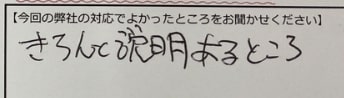 【今回の弊社の対応でよかったところをお聞かせください】
きちんと説明あるところ